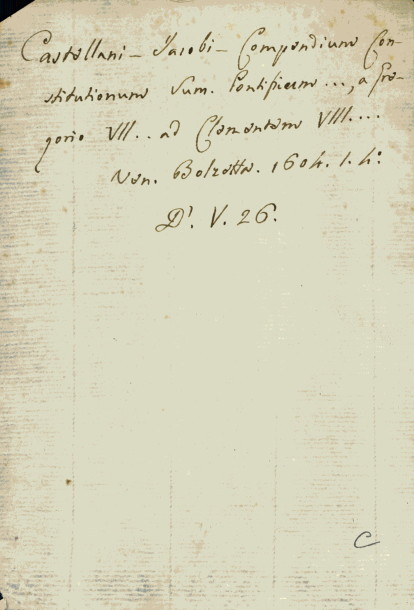 Castellani - Jacobi - Compendium Con-
stitutionum Sum. Pontificum ..., a Gre-
gorio VII. . ad Clementem VIII. ...
Ven. Bolzetta. 1604. 1. 4º
D'. V. 26.
C